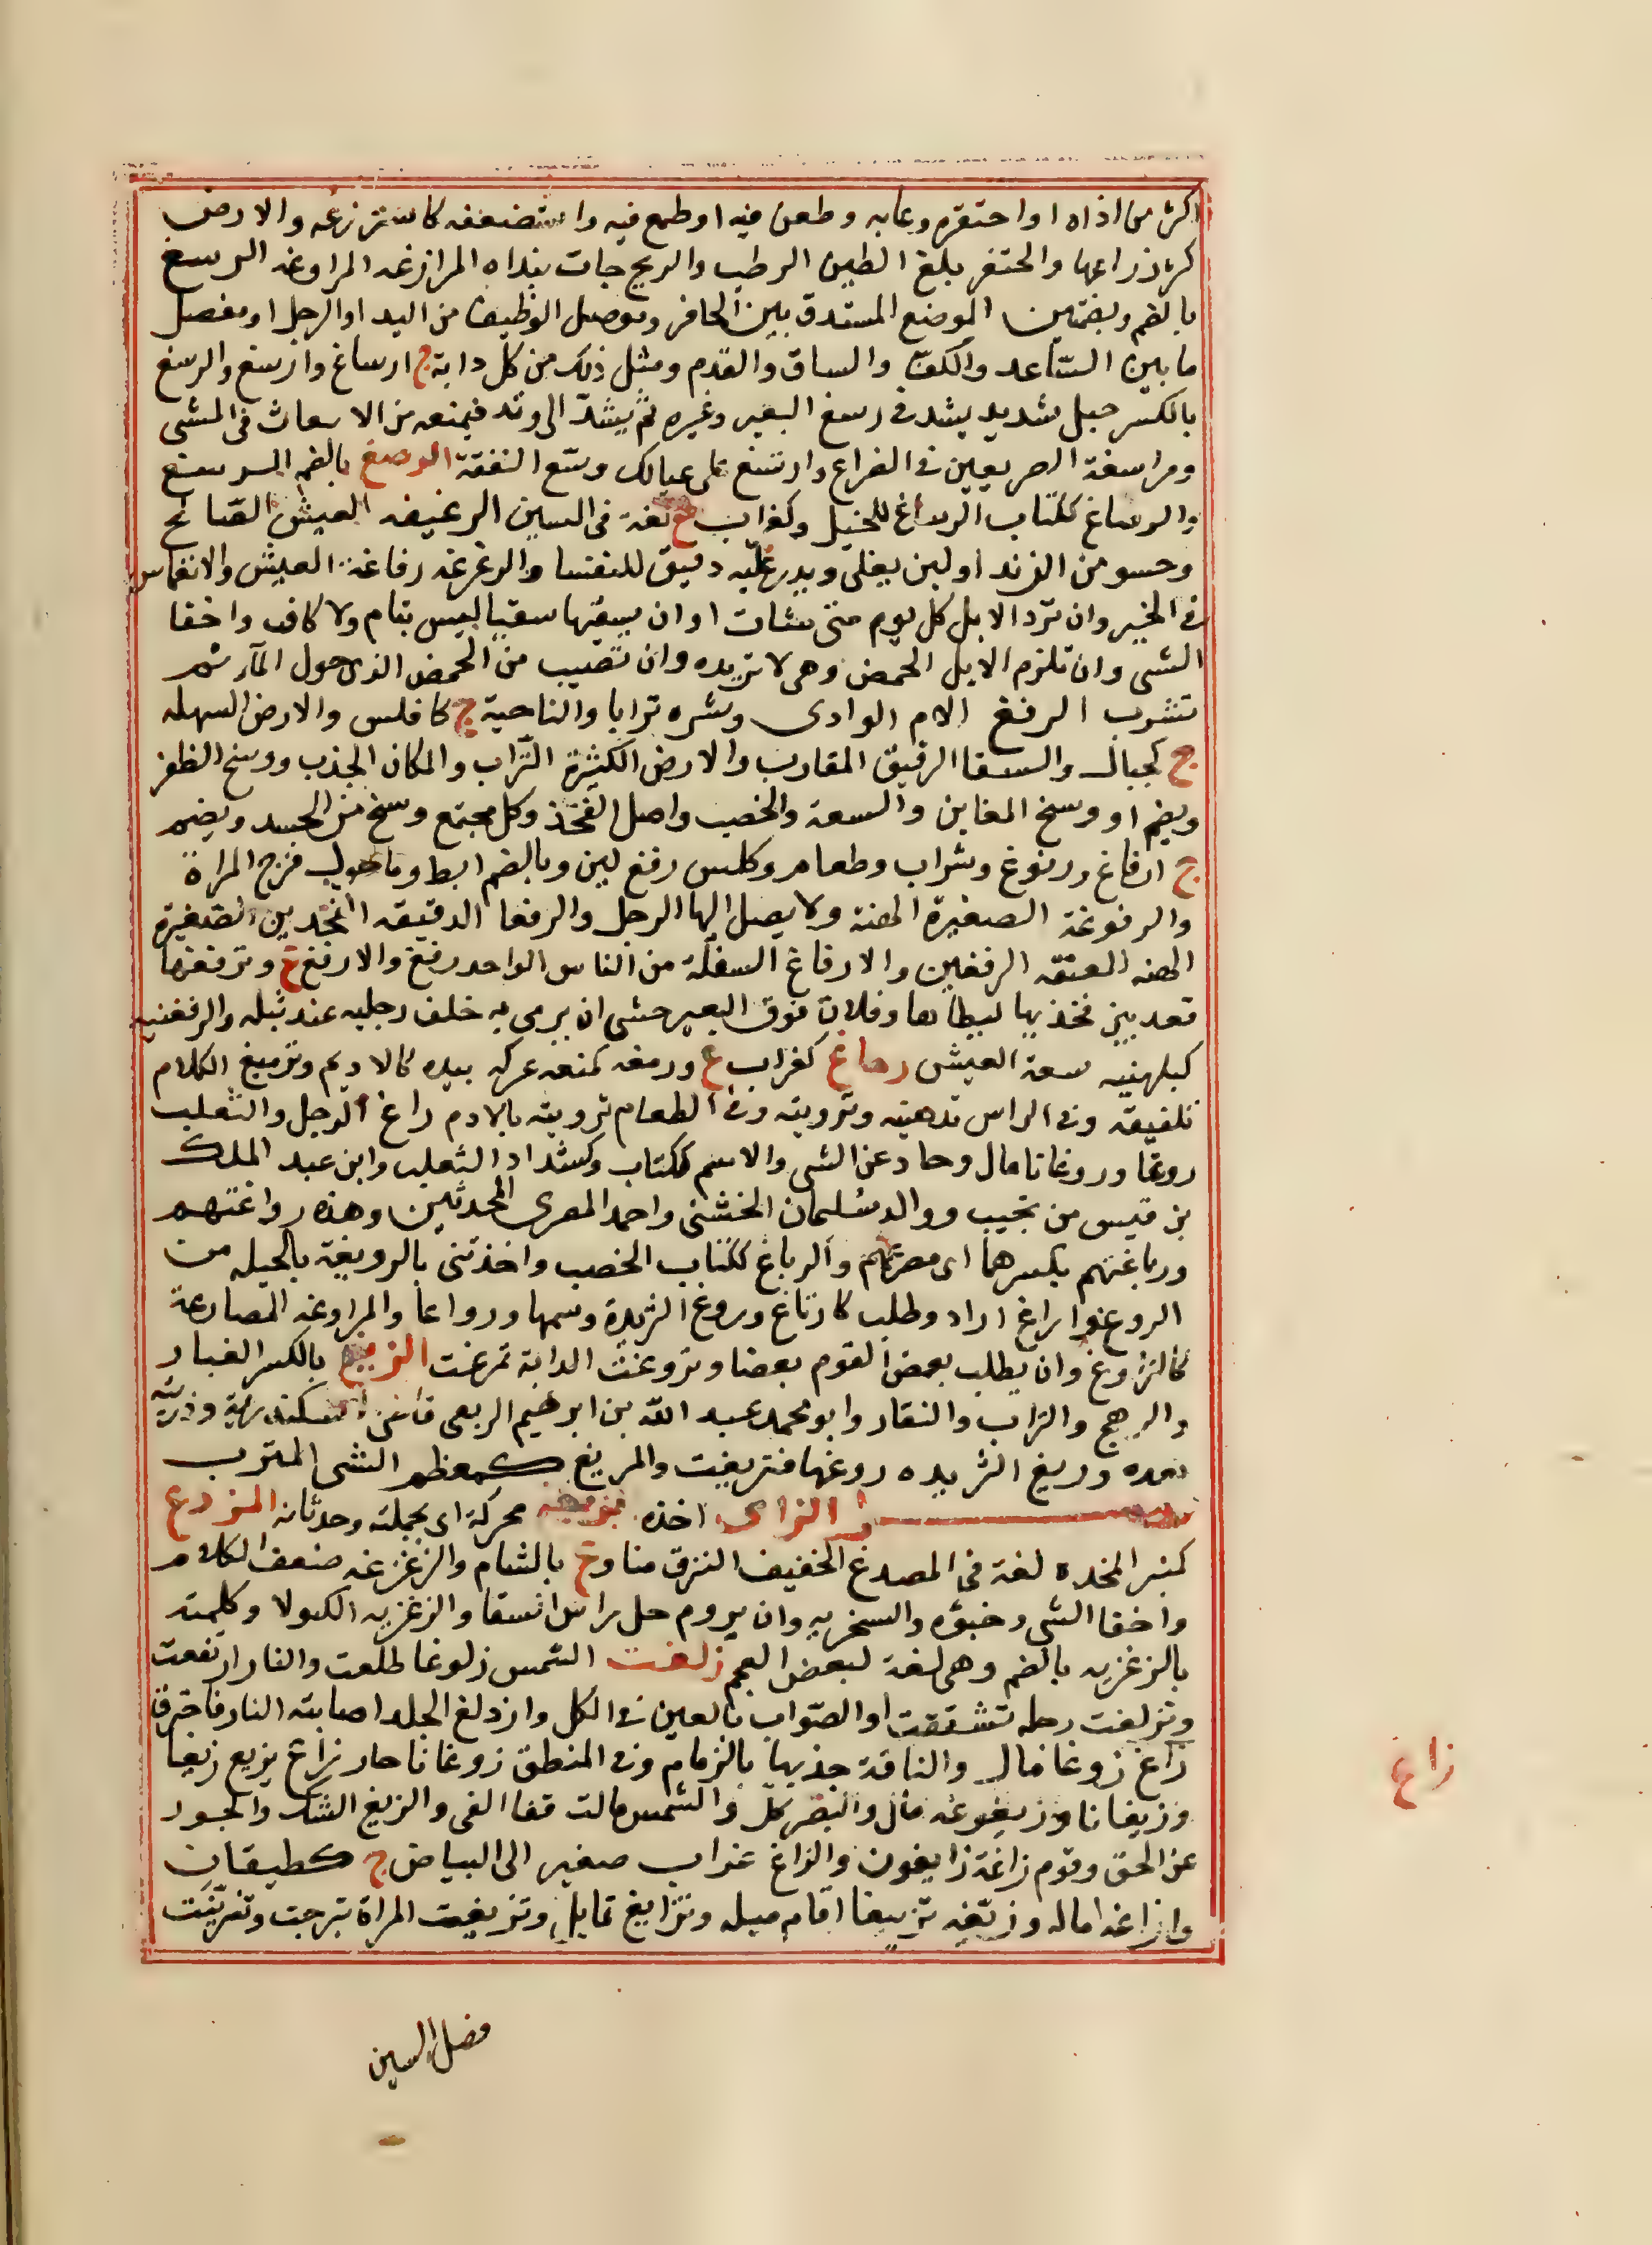 اكثر من اذاه او احتقره وعابه وطعن فيه او طمع فيه واستضعفه كاسترزغه والارض
كثر رزاغها والمحتفر بلغ الطين الرطب والريح جات بنداه المرازغه المراوغه الرسغ
بالضم وبضمتين الموضع المستدق بين الحافر وموصل الوظيف من اليد او الرجل او مفصل
ما بين الساعد والكف والساق والقدم ومثل ذلك من كل دابة ج ارساغ وارسغ والرسغ
بالكسر حبل شديد يشد فى رسغ البعير وغيره ثم يشد الى وتد فيمنعه من الانبعاث فى المشى
ومراسغة الصريعين فى الصراع وارتسغ على عيالك وسع النفقة الرصغ بالضم الرسغ
والرصاغ ككتاب الرساغ للخيل وكغراب ع لغة فى السين الرغيغه العيش الصالح
وحسو من الزبد او لبن يغلى ويذر عليه دقيق للنفسا والرغرغه رفاغة العيش والانغماس
فى الخير وان ترد الابل كل يوم متى شات او ان يسقيها سقيا ليس بتام ولا كاف واخفا
الشى وان تلزم الابل الحمض وهى لا تريده وان تصيب من الحمض الذى حول الماء ثم
تشرب الرفغ الام الوادى وشره ترابا والناحية ج كافلس والارض السهله
ج كجبال والسقا الرقيق المقارب والارض الكثيرة التراب والمكان الجدب ووسخ الظفر
ويضم او وسخ المغابن والسعة والخصب واصل الفخذ وكل مجتمع وسخ من الجسد ويضم
ج ارفاغ ورفوغ وشراب وطعام وكلس رفغ لين وبالضم ابط وما حول فرج المراة
والرفوغة الصغيرة الهنة ولا يصل اليها الرجل والرفغا الدقيقه الفخذين الصغيرة
الهنه المعيقه الرفغين والارفاغ السفلة من الناس الواحد رفغ والارفغ ع وترفغها
قعد بين فخذيها ليطاها وفلان فوق البعير خشى ان يرمى به خلف رجليه عند ثيله والرفغنيه
كبلهنيه سعة العيش رماغ كغراب ع ورمغه كمنعه عركه بيده كالاديم وترميغ الكلام
تلفيقه وفى الراس تدهينه وترويته وفى الطعام ترويته بالادم راغ الرجل والثعلب
روغا وروغانا مال وحاد عن الشى والاسم ككتاب وكشداد الثعلب وابن عبد الملك
بن قيس من تجيب ووالد سليمان الخشنى واحمد المصرى المحدثين وهذه رواغتهم
ورياغتهم بكسرهما اى مصرعهم والرياغ ككتاب الخصب واخذتنى بالرويغة بالحيله من
الروغ واراغ اراد وطلب كارتاغ وروغ الثريدة وسمها ورواها والمراوغه المصارعة
كالتراوغ وان يطلب بعض القوم بعضا وتروغت الدابة تمرغت الريغ بالكسر الغبار
والرهج والتراب والنقار وابو محمد عبد الله بن ابرهيم الريغى قاضى اسكندرية وذريته
بعده وريغ الثريده روغها فتريغت والمريغ كمعظم الشى المترب
فصل الزاى اخذه بزبغه محركة اى بجملته وحدثانه المزدغ
كمنبر المخده لغة فى المصدغ الخفيف النزق مناوغ بالشام والزغزغه ضعف الكلام
واخفا الشى وخبؤه والسخريه وان يروم حل راس السقا والزغزيه الكولا وكلمته
بالزغزيه بالضم وهى لغة لبعض العجم زلغت الشمس زلوغا طلعت والنار ارتفعت
وتزلغت رجله تشققت او الصواب بالعين فى الكل وازدلغ الجلد اصابته النار فاحترق
زاغ زوغا مال والناقة جذبها بالزمام وفى المنطق زوغانا جار زاغ يزيغ زيغا
وزيغانا وزيغوغه مال والبصر كل والشمس مالت ففا الفى والزيغ الشك والجور
عن الحق وقوم زاغة زايغون والزاغ غراب صغير الى البياض ج كطيقان
وازاغه اماله وزيغه تزييغا اقام ميله وتزايغ تمايل وتزيغت المراة تبرجت وتزينت
زاغ
فصل السين